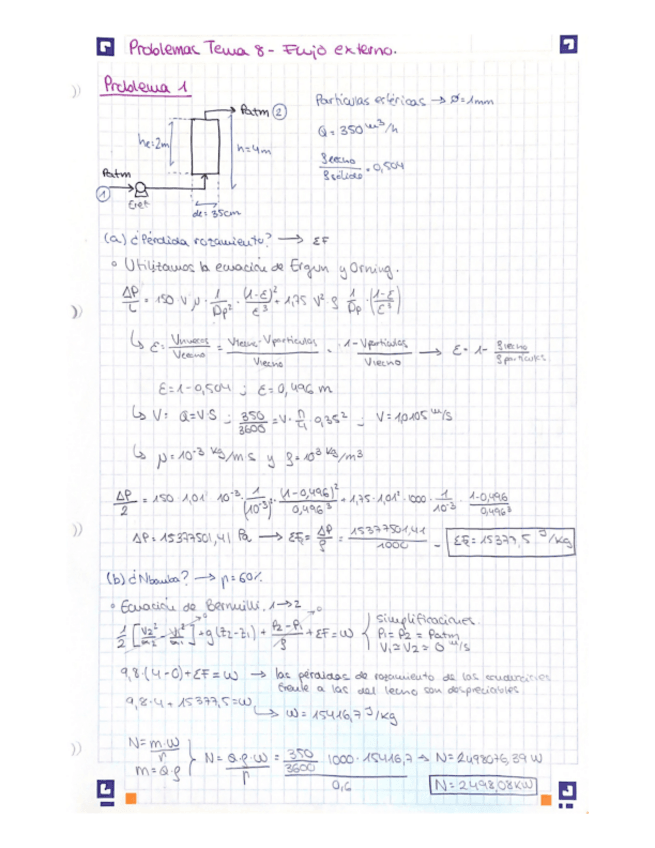 Problemas Tema 8 - Flujo externo.
Problema 1
Partículas esféricas → Ø=1mm
Q = 350 m³/h
ρlecho / ρsólido = 0,504
Patm ②
he=2m
h=4m
Patm
①
de = 35cm
(a) ¿Pérdida rozamiento? → ΣF
• Utilizamos la ecuación de Ergun y Orning.
ΔP/L = 150 · V · μ · 1/Dp² · (1-ε)²/ε³ + 1,75 V² ρ 1/Dp · (1-ε/ε³)
↳ ε = Vhuecos/Vlecho = Vlecho - Vpartículas/Vlecho = 1 - Vpartículas/Vlecho → ε = 1 - ρlecho/ρpartículas
ε = 1 - 0,504 ; ε = 0,496 m
↳ V: Q = V·S ; 350/3600 = V · π/4 · 0,35² ; V = 1,0105 m/s
↳ μ = 10⁻³ kg/m s y ρ = 10³ kg/m³
ΔP/2 = 150 · 1,01 · 10⁻³ · 1/(10⁻³)² · (1-0,496)²/0,496³ + 1,75 · 1,01² · 1000 · 1/10⁻³ · 1-0,496/0,496³
ΔP = 15377501,41 Pa → ΣF = ΔP/ρ = 15377501,41/1000 = ΣF = 15377,5 J/kg
(b) ¿Nbomba? → η = 60%
• Ecuación de Bernuilli, 1→2
1/2 [V2²/α2 - V1²/α1] + g(z2-z1) + P2-P1/ρ + ΣF = W
Simplificaciones
P1 = P2 = Patm
V1 ≈ V2 ≈ 0 m/s
9,8·(4-0) + ΣF = W → las pérdidas de rozamiento de las conducciones frente a las del lecho son despreciables.
9,8·4 + 15377,5 = W
↳ W = 15416,7 J/kg
N = m·W/η
m = Q·ρ
N = Q·ρ·W/η = 350/3600 · 1000 · 15416,7/0,6 → N = 2498076,39 W
N = 2498,08 kW